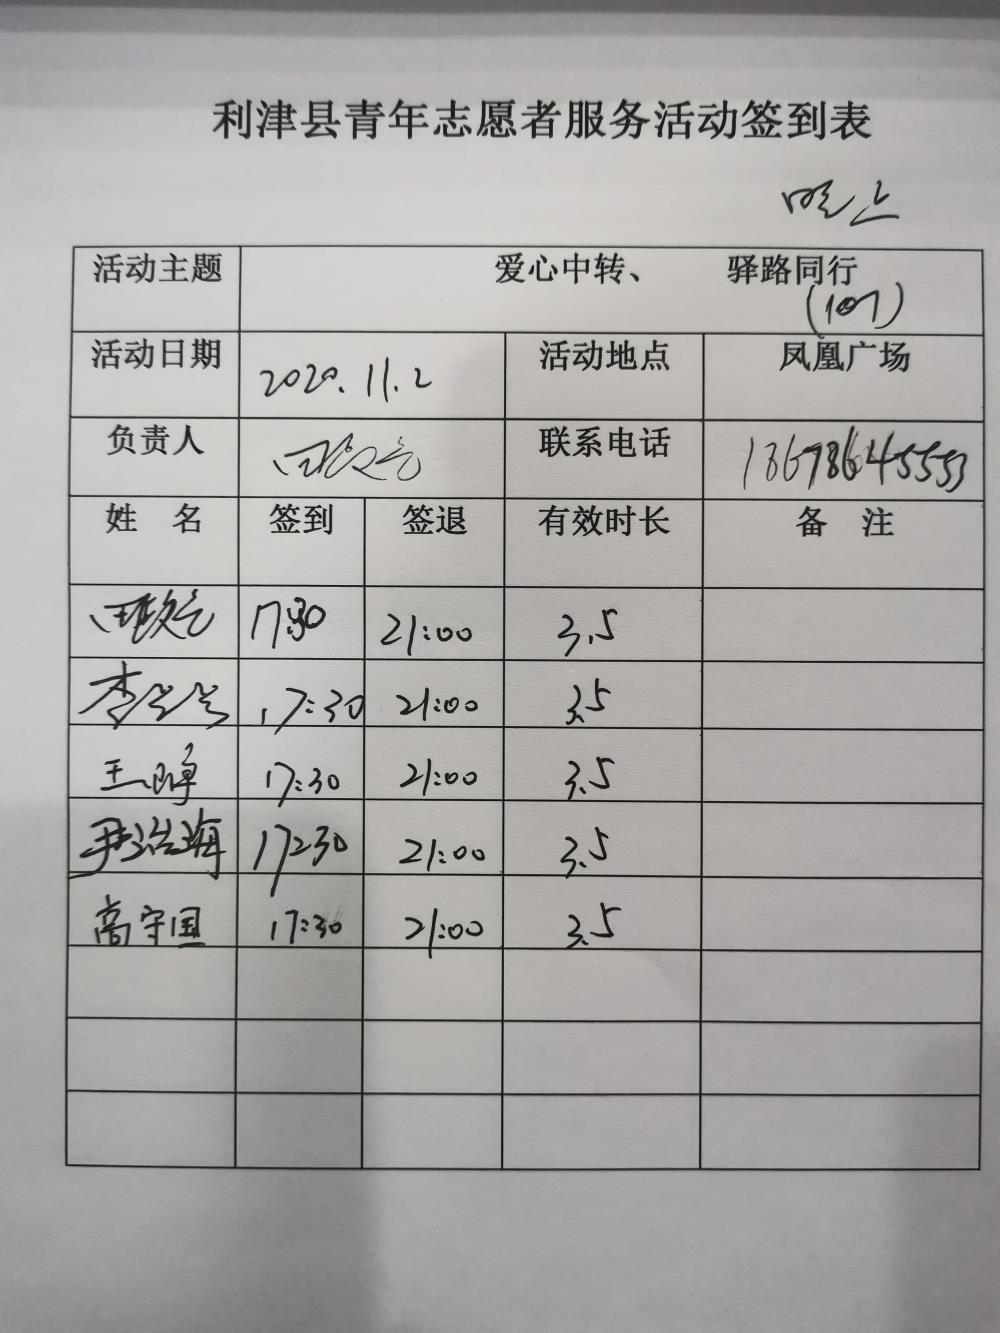 利津县青年志愿者服务活动签到表
晚上
活动主题 爱心中转、 驿路同行
(107)
活动日期 2020.11.2 活动地点 凤凰广场
负责人 联系电话 13678645553
姓 名 签到 签退 有效时长 备 注
17:30 21:00 3.5
李 17:30 21:00 3.5
王 17:30 21:00 3.5
尹浩海 17:30 21:00 3.5
高守国 17:30 21:00 3.5